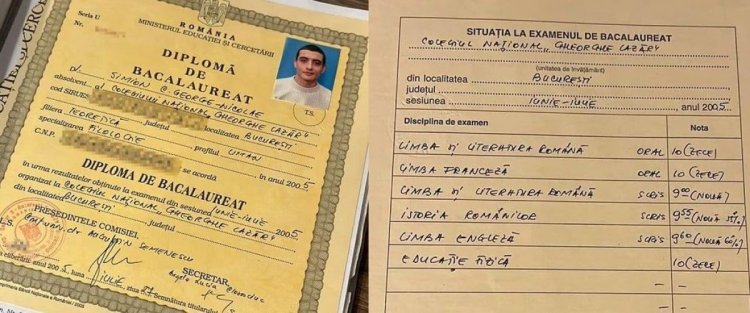 Seria U
ROMÂNIA
MINISTERUL EDUCAȚIEI ȘI CERCETĂRII
DIPLOMĂ
DE
BACALAUREAT
SIMION G. GEORGE-NICOLAE
absolvent al COLEGIUL NAȚIONAL "GHEORGHE LAZĂR"
cod SIRUES localitatea BUCUREȘTI
filiera TEORETICĂ, județul
specializarea FILOLOGIE profilul UMAN
C.N.P. în anul 2005
se acordă
DIPLOMA DE BACALAUREAT
în urma rezultatelor obținute la examenul din sesiunea IUNIE-IULIE 2005
organizat la COLEGIUL NAȚIONAL "GHEORGHE LAZĂR"
din localitatea BUCUREȘTI județul
PREȘEDINTELE COMISIEI,
SECRETAR
T.S.
eliberării: anul 2005, luna IULIE
Semnătura titularului
SITUAȚIA LA EXAMENUL DE BACALAUREAT
COLEGIUL NAȚIONAL "GHEORGHE LAZĂR"
(unitatea de învățământ)
din localitatea BUCUREȘTI
județul
sesiunea IUNIE-IULIE, anul 2005
Disciplina de examen Nota
LIMBA ȘI LITERATURA ROMÂNĂ ORAL 10 (ZECE)
LIMBA FRANCEZĂ ORAL 10 (ZECE)
LIMBA ȘI LITERATURA ROMÂNĂ SCRIS 900 (NOUĂ)
ISTORIA ROMÂNILOR SCRIS
LIMBA ENGLEZĂ SCRIS 960 (NOUĂ 60%)
EDUCAȚIE FIZICĂ 10 (ZECE)